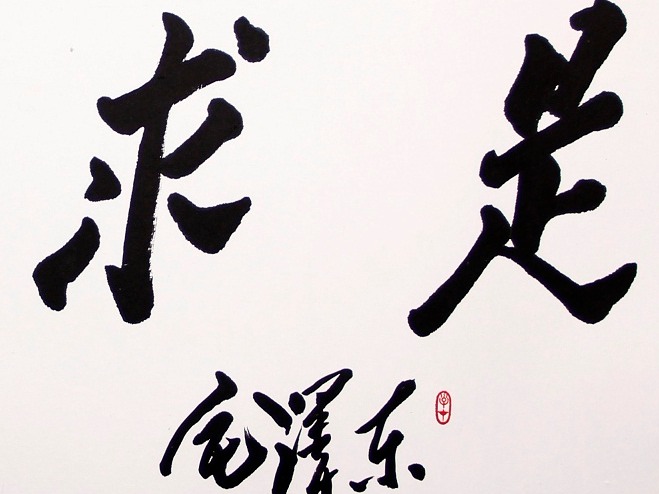 求是
毛泽东